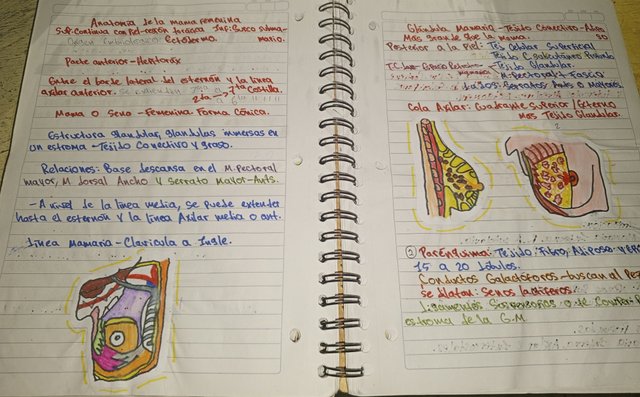 Anatomía de la mama femenina
Sup: Continua con Piel-región torácica Inf: Surco subma-
mario.
Origen Embriológico: Ectodermo.
Parte anterior - Hemitorax
Entre el borde lateral del esternón y la línea
axilar anterior. 2da - 7ma Costilla.
Mama o Seno - Femenina: Forma Cónica.
Estructura glandular, glándulas inmersas en
un estroma - Tejido Conectivo y graso.
Relaciones: Base descansa en el M. Pectoral
mayor, M dorsal Ancho y Serrato Mayor - Ants.
- A nivel de la línea media, se puede extender
hasta el esternón y la línea Axilar media o ant.
Línea Mamaria - Clavícula a Ingle.
Glándula Mamaria - Tejido Conectivo - Adipo
so
Más grande que la mama.
Posterior a la Piel: Tej Celular Superficial
Tejido Glandular.
M. Pectoral + Fascia
Lados: Serratos Ants o mayores.
Cola Axilar: Cuadrante Superior / Externo
Mas Tejido Glandular.
② Parénquima: Tejido: Fibro, Adiposo
15 a 20 lóbulos.
Conductos Galactóforos - buscan al Pe
se dilatan: Senos lactíferos
Ligamentos Suspensorios o de
estroma de la G.M